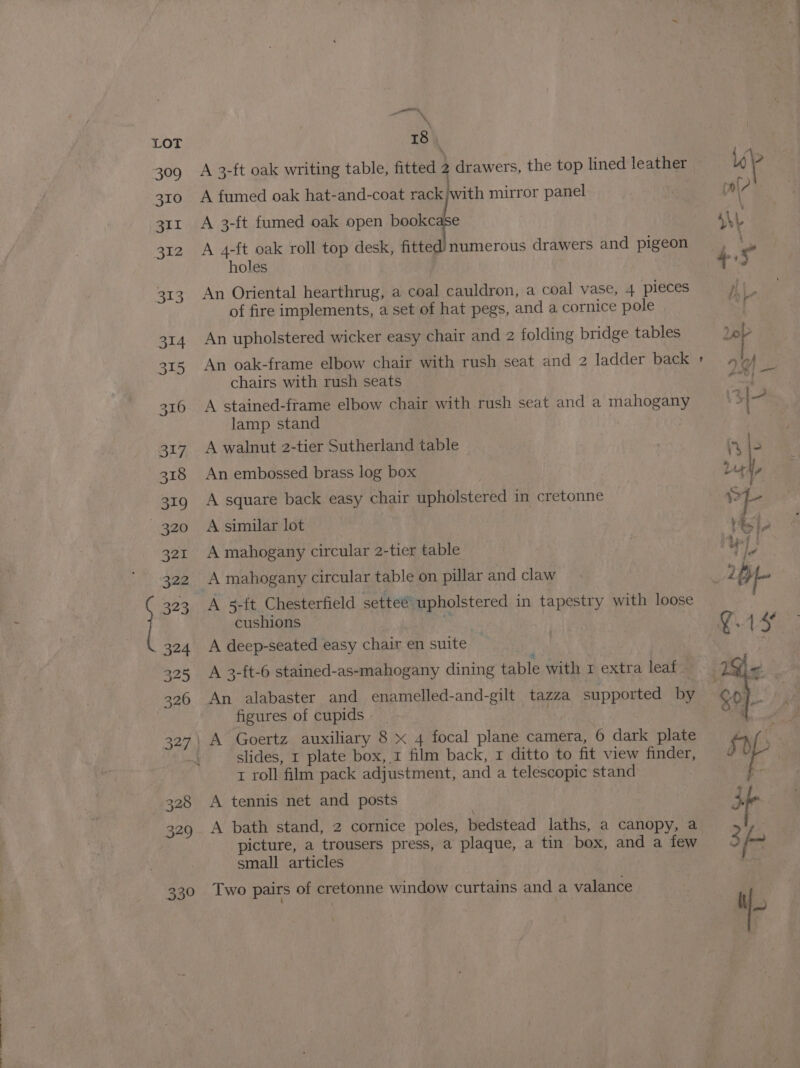 18
LOT
309 A 3-ft oak writing table, fitted 2 drawers, the top lined leather
310 A fumed oak hat-and-coat rack with mirror panel
311 A 3-ft fumed oak open bookcase
312 A 4-ft oak roll top desk, fitted numerous drawers and pigeon
holes
313 An Oriental hearthrug, a coal cauldron, a coal vase, 4 pieces
of fire implements, a set of hat pegs, and a cornice pole
314 An upholstered wicker easy chair and 2 folding bridge tables
315 An oak-frame elbow chair with rush seat and 2 ladder back
chairs with rush seats
316 A stained-frame elbow chair with rush seat and a mahogany
lamp stand
317 A walnut 2-tier Sutherland table
318 An embossed brass log box
319 A square back easy chair upholstered in cretonne
320 A similar lot
321 A mahogany circular 2-tier table
322 A mahogany circular table on pillar and claw
323 A 5-ft Chesterfield settee upholstered in tapestry with loose
cushions
324 A deep-seated easy chair en suite
325 A 3-ft-6 stained-as-mahogany dining table with 1 extra leaf
326 An alabaster and enamelled-and-gilt tazza supported by
figures of cupids
327 A Goertz auxiliary 8 × 4 focal plane camera, 6 dark plate
slides, 1 plate box, 1 film back, 1 ditto to fit view finder,
1 roll film pack adjustment, and a telescopic stand
328 A tennis net and posts
329 A bath stand, 2 cornice poles, bedstead laths, a canopy, a
picture, a trousers press, a plaque, a tin box, and a few
small articles
330 Two pairs of cretonne window curtains and a valance